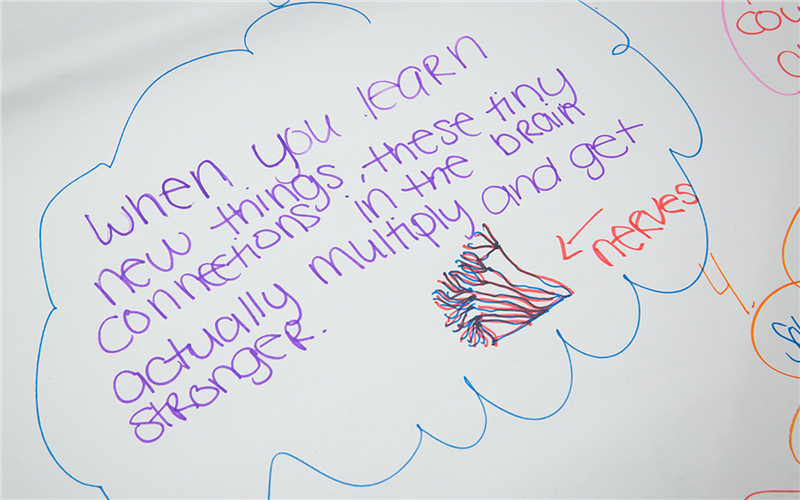 when you learn
new things, these tiny
connections in the brain
actually multiply and get
stronger.
nerves
4.